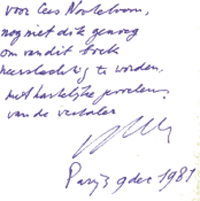 voor Cees Nooteboom,
nog niet dik genoeg
om van dit boek
neerslachtig te worden,
met hartelijke groeten,
van de vertaler
Parijs 9 dec 1981